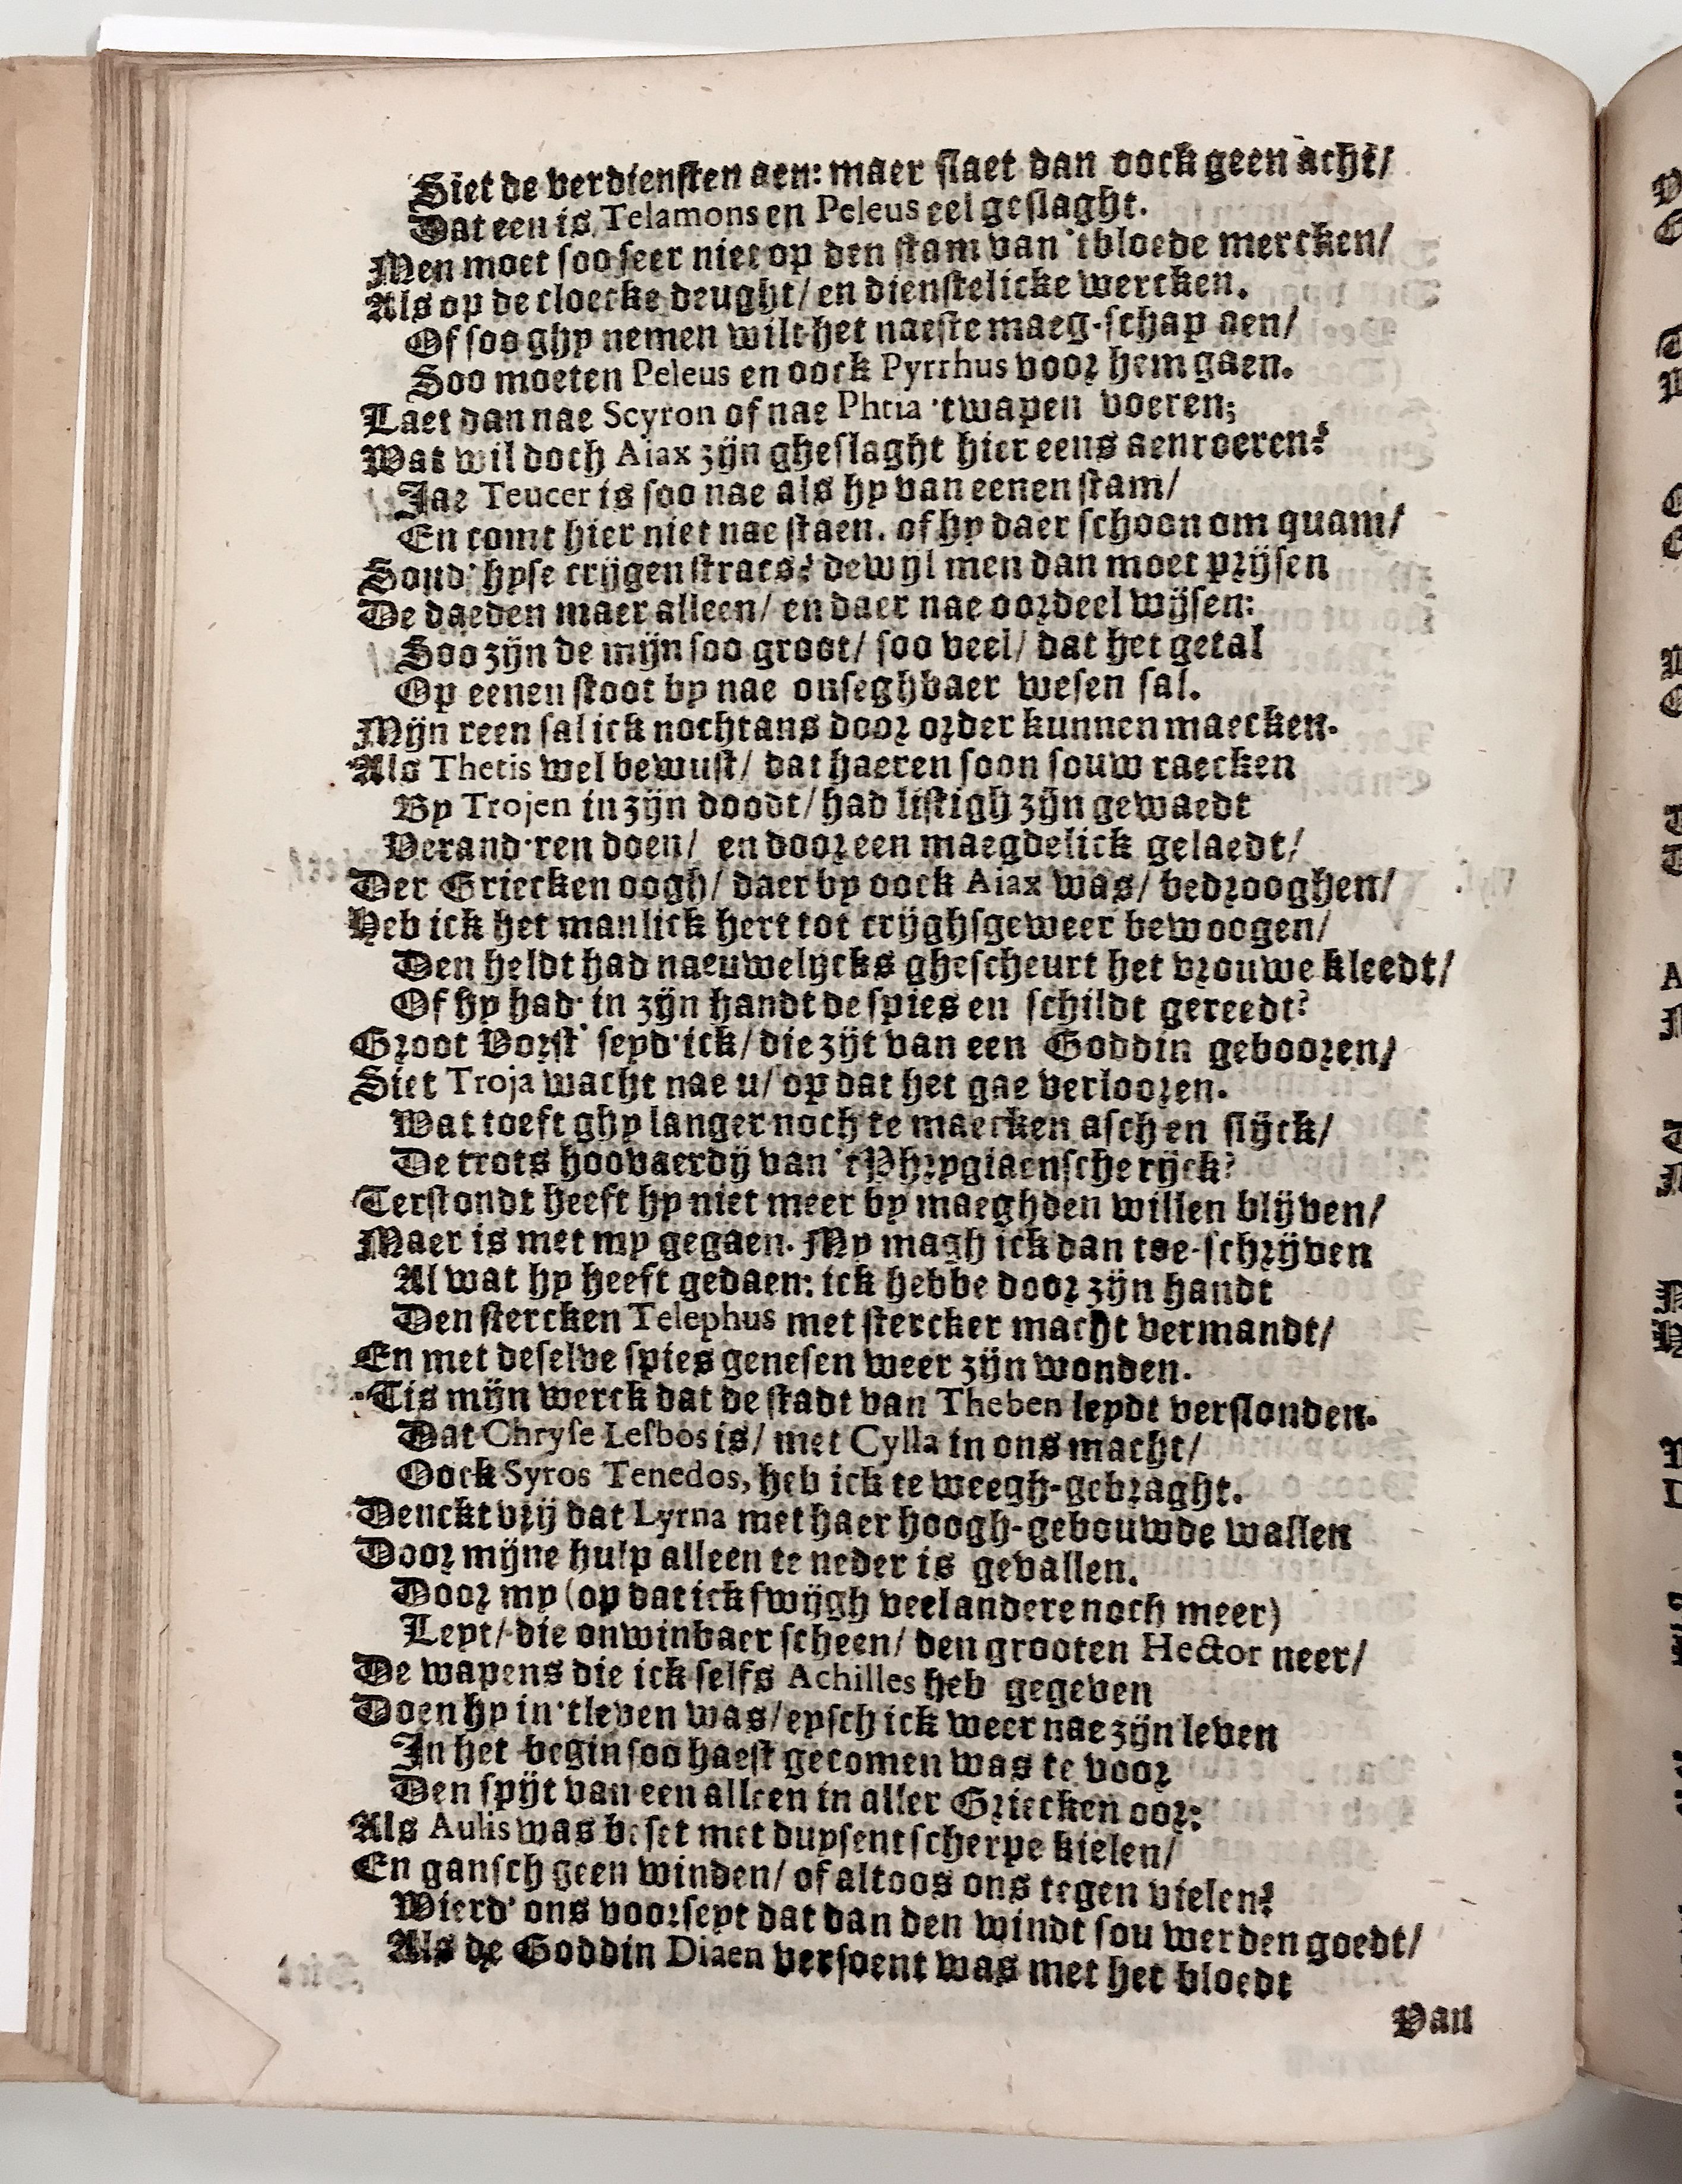 Siet de verdiensten aen: maer slaet dan oock geen acht/
Dat een is Telamons en Peleus eel geslaght.
Men moet soo seer niet op den stam van 'tbloede mercken/
Als op de cloecke deught/ en dienstelicke wercken.
Of soo ghy nemen wilt het naeste maeg-schap aen/
Soo moeten Peleus en oock Pyrrhus voor hem gaen.
Laet dan nae Scyron of nae Phtia 'twapen voeren;
Wat wil doch Aiax zijn gheslaght hier eens aenroeren?
Jae Teucer is soo nae als hy van eenen stam/
En comt hier niet nae staen. of hy daer schoon om quam/
Soud' hyse crijgen stracs? dewijl men dan moet prijsen
De daeden maer alleen/ en daer nae oordeel wijsen:
Soo zijn de mijn soo groot/ soo veel/ dat het getal
Op eenen stoot by nae onseghbaer wesen sal.
Mijn reen sal ick nochtans door order kunnen maecken.
Als Thetis wel bewust/ dat haeren soon souw raecken
By Trojen in zijn doodt/ had listigh zijn gewaedt
Verand'ren doen/ en door een maegdelick gelaedt/
Der Griecken oogh/ daer by oock Aiax was/ bedrooghen/
Heb ick het manlick hert tot crijghsgeweer bewoogen/
Den heldt had naeuwelijcks ghescheurt het vrouwe kleedt/
Of hy had' in zijn handt de spies en schildt gereedt?
Groot Vorst' seyd'ick/ die zijt van een Goddin gebooren/
Siet Troja wacht nae u/ op dat het gae verlooren.
Wat toeft ghy langer noch te maecken asch en slijck/
De trots hoovaerdij van 'tPhrygiaensche rijck?
Terstondt heeft hy niet meer by maeghden willen blijven/
Maer is met my gegaen. My magh ick dan toe-schrijven
Al wat hy heeft gedaen: ick hebbe door zijn handt
Den stercken Telephus met stercker macht vermandt/
En met deselve spies genesen weer zijn wonden.
'Tis mijn werck dat de stadt van Theben leydt verslonden.
Dat Chryse Lesbos is/ met Cylla in ons macht/
Oock Syros Tenedos, heb ick te weegh-gebraght.
Denckt vrij dat Lyrna met haer hoogh-gebouwde wallen
Door mijne hulp alleen te neder is gevallen.
Door my (op dat ick swijgh veel andere noch meer)
Leyt/ die onwinbaer scheen/ den grooten Hector neer/
De wapens die ick selfs Achilles heb gegeven
Doen hy in 'tleven was/ eysch ick weer nae zijn leven
In het begin soo haest gecomen was te voor
Den spijt van een alleen in aller Griecken oor:
Als Aulis was beset met duysent scherpe kielen/
En gansch geen winden/ of altoos ons tegen vielen?
Wierd' ons voorseyt dat dan den windt sou werden goedt/
Als de Goddin Diaen versoent was met het bloedt
Van